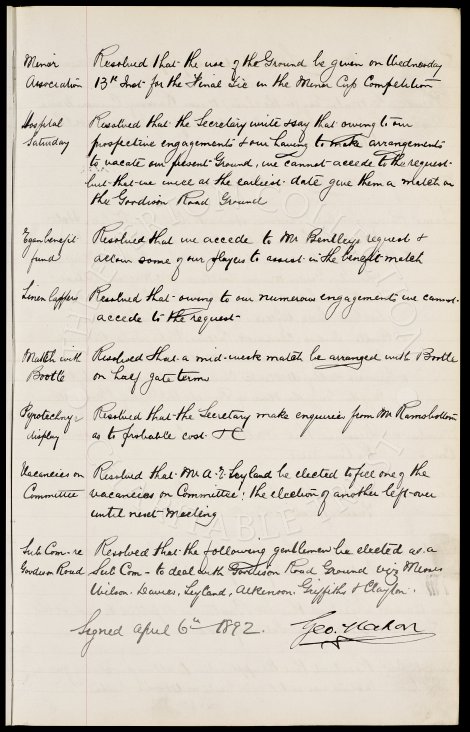 Minor Resolved that the use of the Ground be given on Wednesday
Association 13th Inst for the Final Tie in the Minor Cup Competition
Hospital Resolved that the Secretary write & say that owing to our
Saturday prospective engagements & our having to make arrangements
to vacate our present Ground, we cannot accede to the request
but that we will at the earliest date give them a match on
the Goodison Road Ground
benefit Resolved that we accede to Mr Bentleys request &
fund allow some of our players to assist in the benefit match
Linen Lappers Resolved that owing to our numerous engagements we cannot
accede to the request
Match with Resolved that a mid-week match be arranged with Bootle
Bootle on half gate terms
Pyrotechnic Resolved that the Secretary make enquiries from Mr Ramsbottom
display as to probable cost &c
Vacancies on Resolved that Mr A. E. Leyland be elected to fill one of the
Committee vacancies on Committee: the election of another left over
until next meeting
Sub Com- re Resolved that the following gentlemen be elected as a
Goodison Road Sub Com- to deal with Goodison Road Ground viz Messrs
Wilson, Davies, Leyland, Atkinson, Griffiths & Clayton.
Signed April 6th 1892. Geo. Mahon